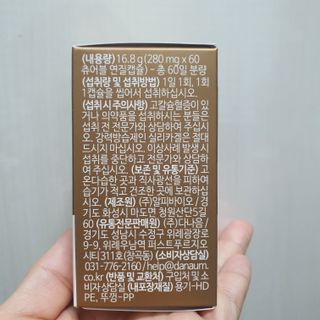 (내용량) 16.8 g (280 mg x 60
츄어블 연질캡슐) – 총 60일 분량
(섭취량 및 섭취방법) 1일 1회, 1회
1캡슐을 씹어서 섭취하십시오.
(섭취 시 주의사항) 고칼슘혈증이 있
거나 의약품을 섭취하시는 분들은
섭취 전 전문가와 상담하여 주십시
오. 강력방습제인 실리카겔은 절대
드시지 마십시오. 이상사례 발생 시
섭취를 중단하고 전문가와 상담하
여 주십시오. (보존 및 유통기준) 고
오다습한 곳과 직사광선을 피하여
습기가 적고 건조한 곳에 보관하십시
오. (제조원) (주)알피바이오 / 경
기도 화성시 마도면 청원산단5길
60 (유통전문판매원) (주)다나음/
경기도 성남시 수정구 위례광장로
9-9, 위례우남역 퍼스트푸르지오
시티311호(창곡동) (소비자상담실)
031-776-2160 / help@danaum.
co.kr (반품 및 교환처) 구입처 및 소
비자상담실 (내포장재질) 용기-HD
PE, 뚜껑-PP